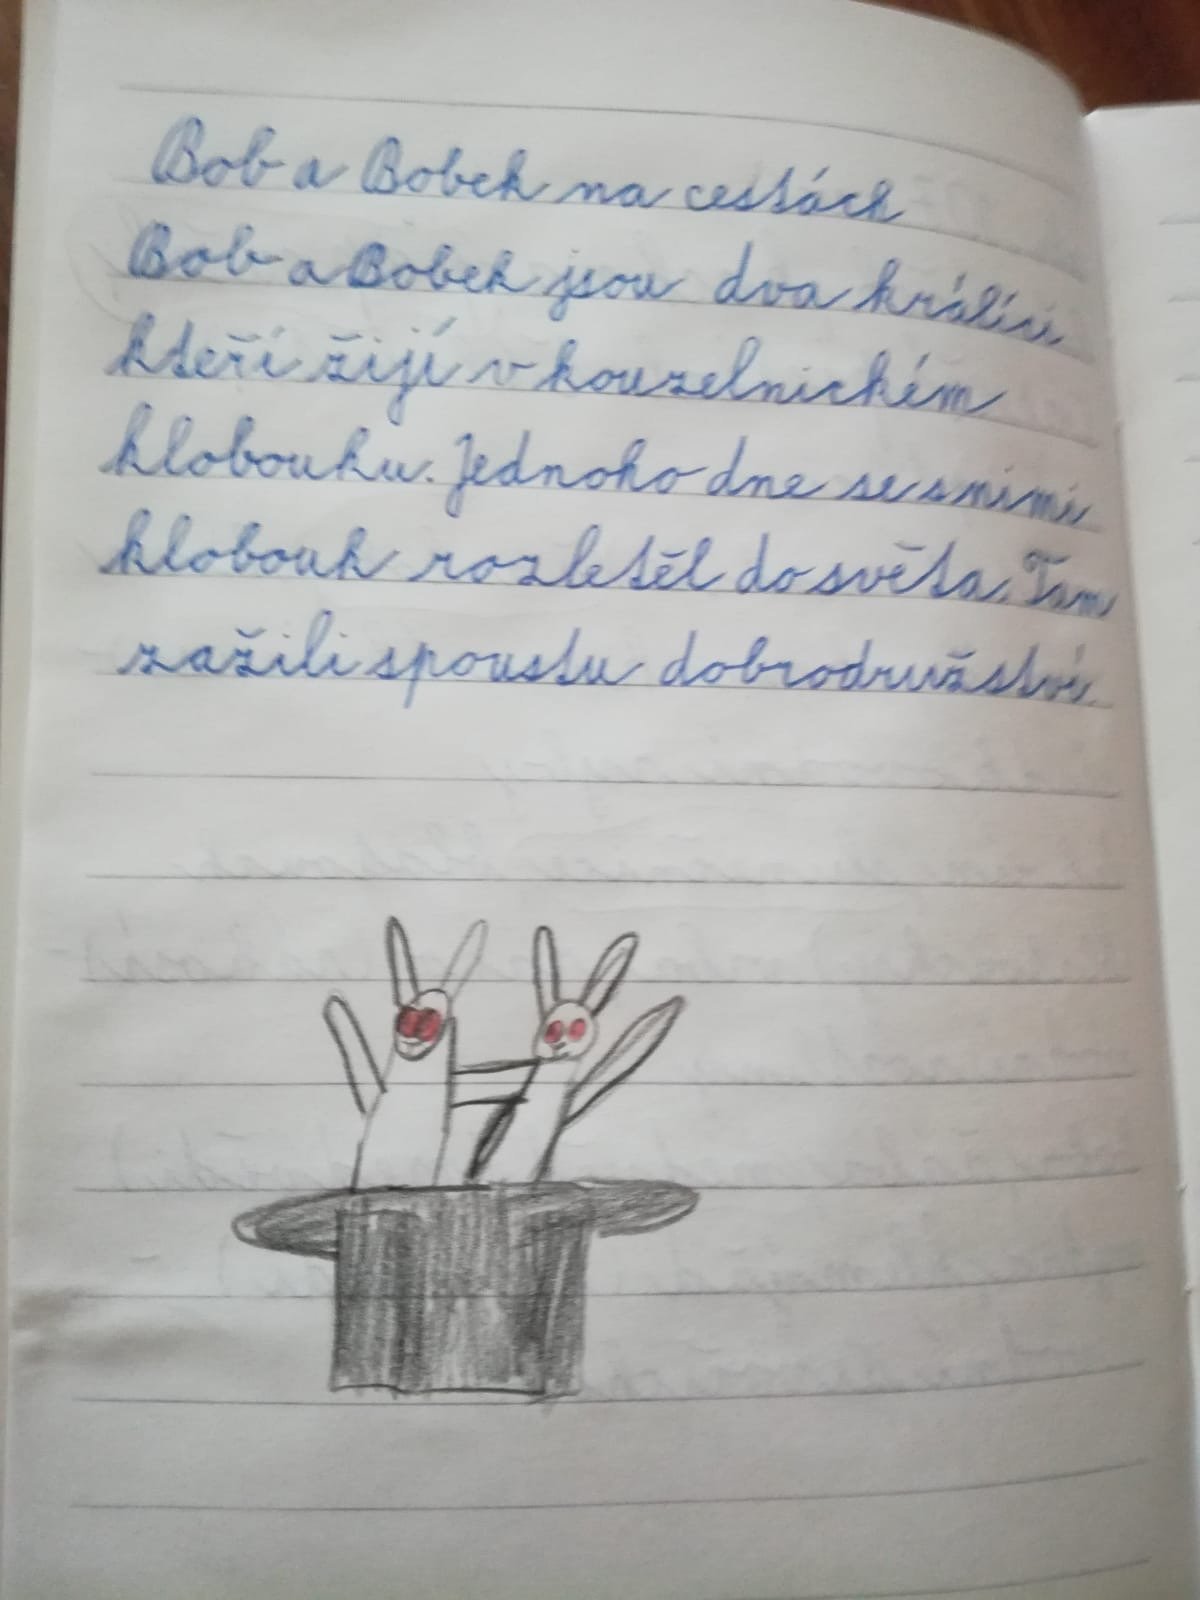 Bob a Bobek na cestách
Bob a Bobek jsou dva králíci
kteří žijí v kouzelnickém
klobouku. Jednoho dne se s nimi
klobouk rozletěl do světa. Tam
zažili spoustu dobrodružství.